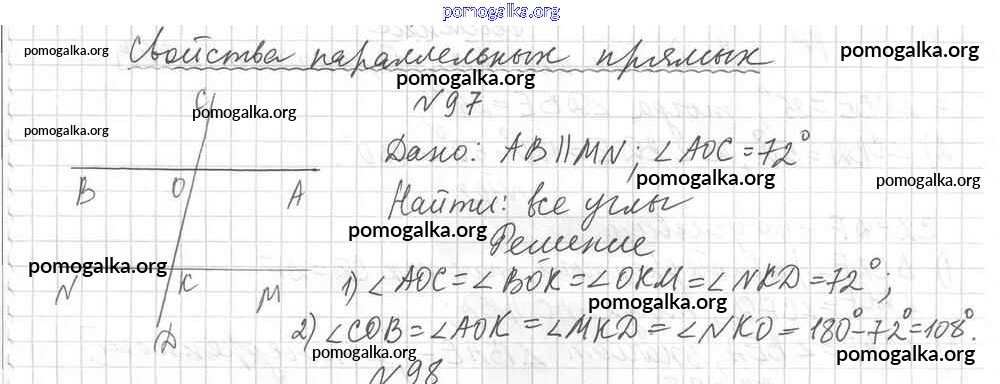 pomogalka.org
Свойства параллельных прямых
pomogalka.org pomogalka.org
pomogalka.org
N97
C
pomogalka.org
pomogalka.org
Дано: AB||MN; ∠AOC=72°
pomogalka.org pomogalka.org
B O A
Найти: все углы
pomogalka.org
Решение
pomogalka.org
1) ∠AOC=∠BOK=∠OKM=∠NKD=72°;
N K M
pomogalka.org
D
2) ∠COB=∠AOK=∠MKD=∠NKO=180°-72°=108°.
pomogalka.org pomogalka.org
N98